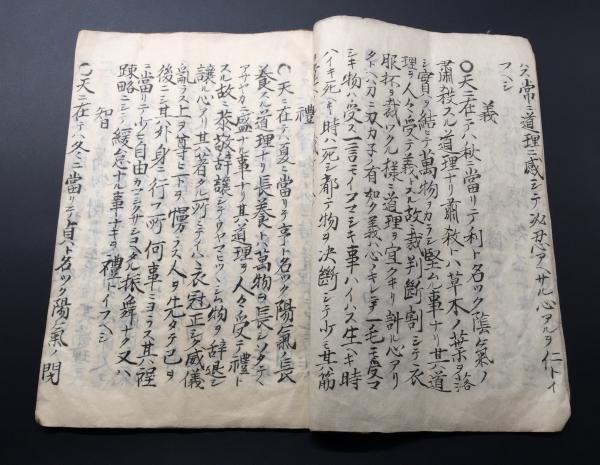 ハス常ニ道理ニ感シテ必丑心アヘサル心アルヲ仁トイ
フヘシ
義
〇天ニ在テハ秋ニ當リテ利ト名ツク陰氣ノ
肅殺スル道理ナリ肅殺トハ草木ノ葉ヲ落
シ實ヲ結ヒテ萬物ヲカラシ堅ムル事ナリ其道
理ヲ人々受テ義トスル故ニ裁判斷割シテ衣
服抔ヲ裁ツクル様ニ道理ノ宜クキリ計ル心アリ
タトヘハカニ刃カ子ノ有如ク義ハ心ノキレモノ毛モ受マ
シキ物ハ受ス一言モイフマシキ事ハイハス生ヘキ時
ハイキ死ヘキ時ハ死シ都テ物ヲ決斷シテ少モ其筋
禮
〇天ニ在テハ夏ニ當リテ亨ト名ツク陽氣ノ長
養スル道理ナリ長養トハ萬物ヲ長シソタテヽ
アサヤカニ盛ナル事ナリ其道理ヲ人々受テ禮ト
スル故ニ恭敬辞讓シテウヤマヒツヽシム物ヲ辞退シ
讓ル心アリ其ハ著タル所ニテイハヽ衣冠正シク威儀
乱ラス上ヲ尊ミ下ヲ慢ラス人ヲ先タテ己ヲ
後ニシ其外身ニ行フ所何事ニヨラス其程
ニ當リテ少モ自由カマシクサシコヘタル振舞ナク又ハ
疎略ニシテ緩怠ナル事ナキヲ禮トイフヘシ
智
〇天ニ在テハ冬ニ當リテ貞ト名ツク陽氣ノ閇